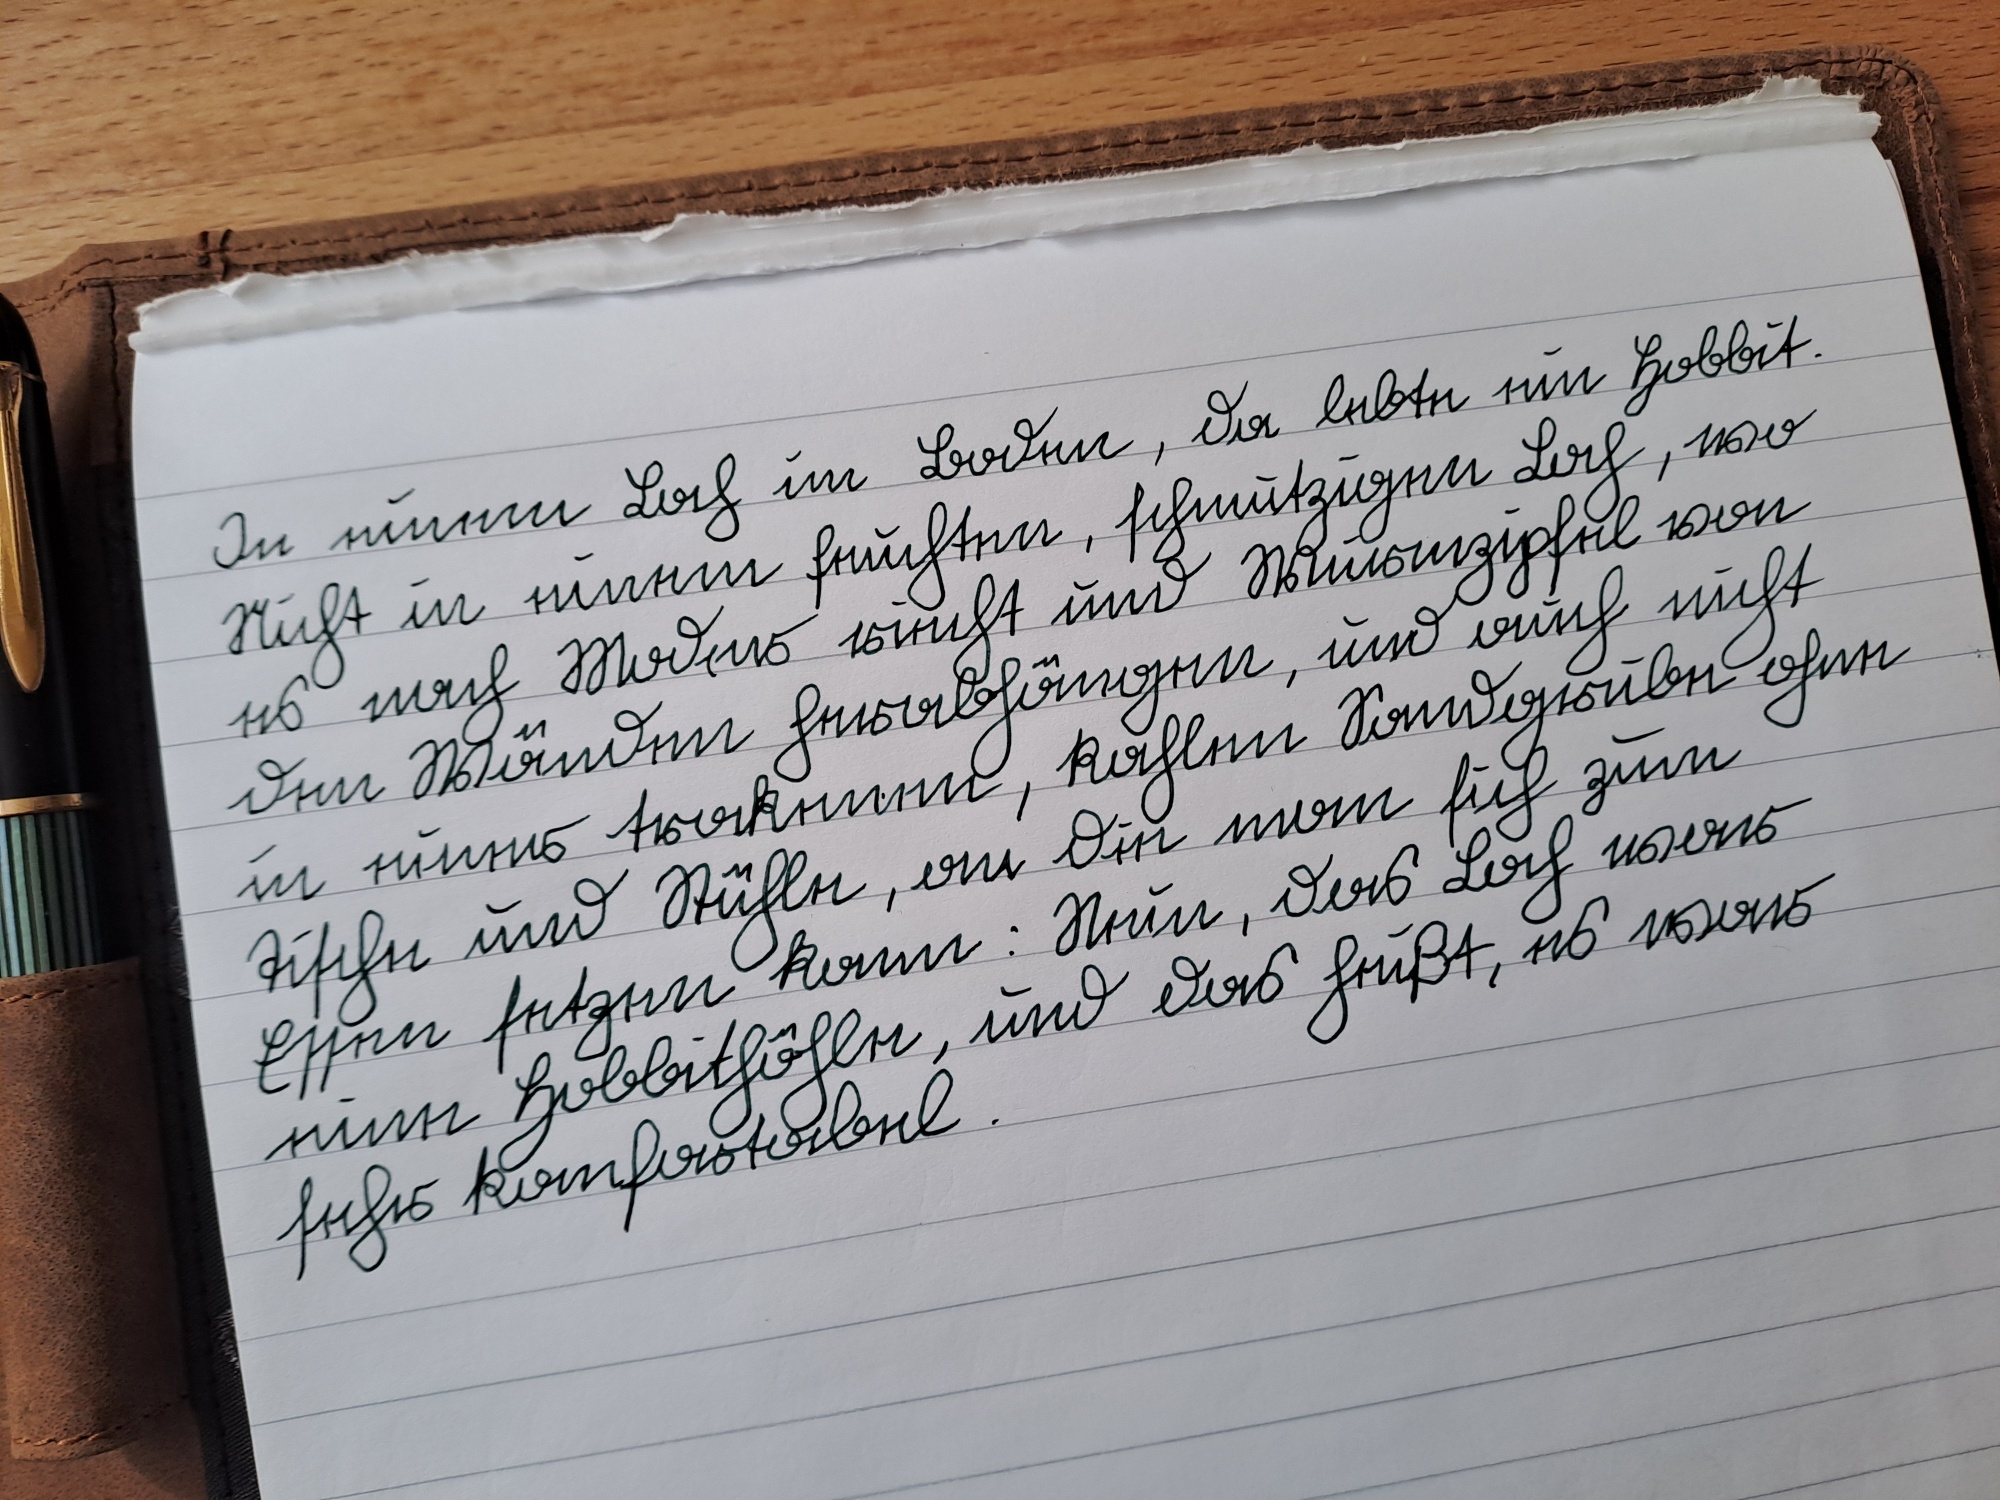 In einem Loch im Boden, da lebte ein Hobbit.
Nicht in einem feuchten, schmutzigen Loch, wo
es nach Moder riecht und Wurmzipfel von
den Wänden herabhängen, und auch nicht
in einer trockenen, kahlen Sandgrube ohne
Tische und Stühle, an die man sich zum
Essen setzen kann: Nein, das Loch war
eine Hobbithöhle, und das heißt, es war
sehr komfortabel.